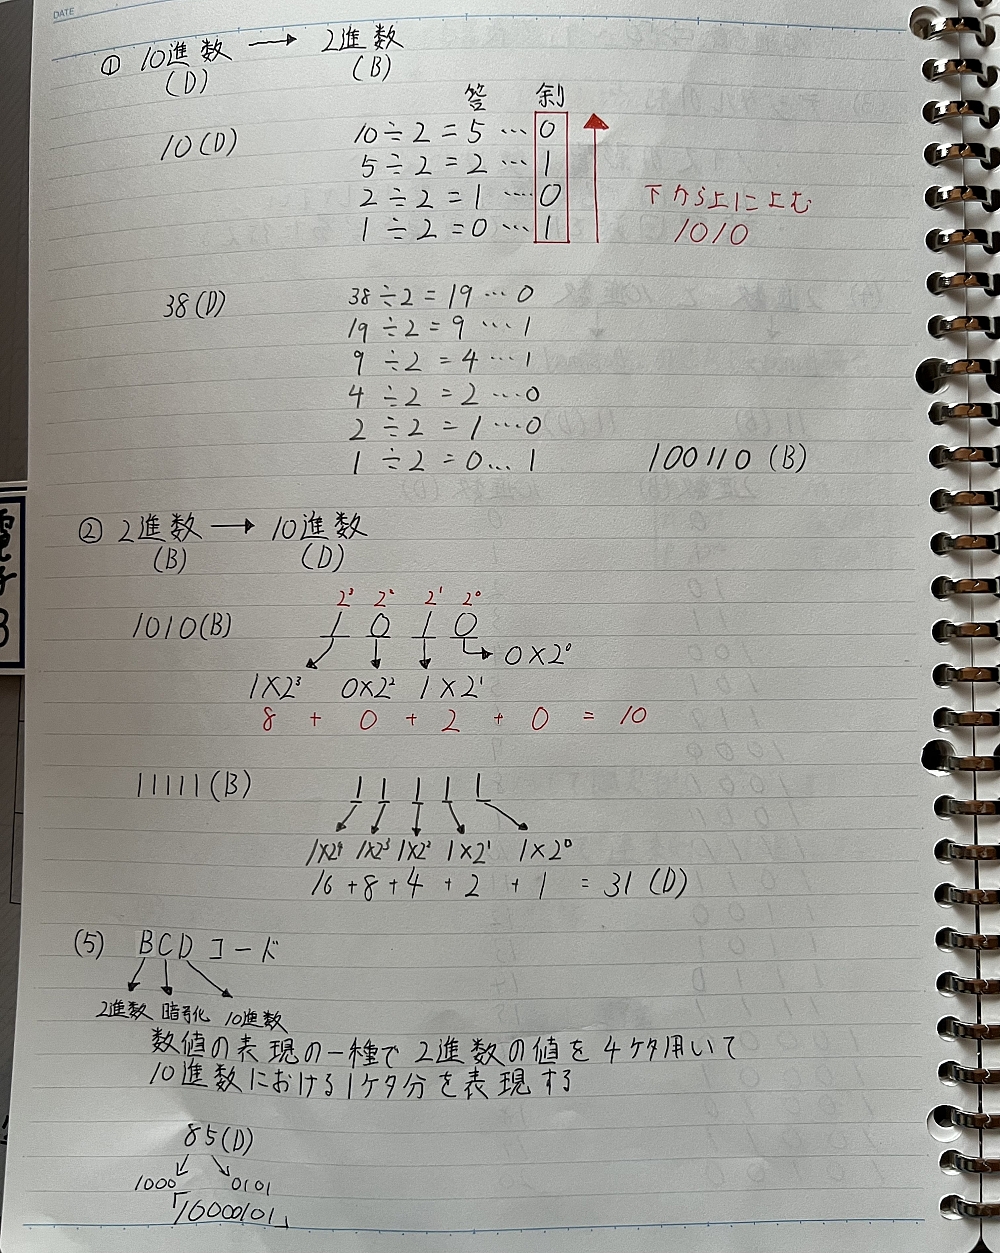 DATE
① 10進数 → 2進数
(D) (B)
答 剰
10(D) 10÷2=5…0
5÷2=2…1
2÷2=1…0 下から上によむ
1÷2=0…1 1010
38(D) 38÷2=19…0
19÷2=9…1
9÷2=4…1
4÷2=2…0
2÷2=1…0
1÷2=0…1 100110(B)
② 2進数 → 10進数
(B) (D)
2³ 2² 2¹ 2⁰
1010(B) 1 0 1 0
0×2⁰
1×2³ 0×2² 1×2¹
8 + 0 + 2 + 0 = 10
11111(B) 1 1 1 1 1
1×2⁴ 1×2³ 1×2² 1×2¹ 1×2⁰
16+8+4+2+1=31(D)
(5) BCDコード
2進数 暗号化 10進数
数値の表現の一種で2進数の値を4ケタ用いて
10進数における1ケタ分を表現する
85(D)
1000 0101
「10000101」
電子